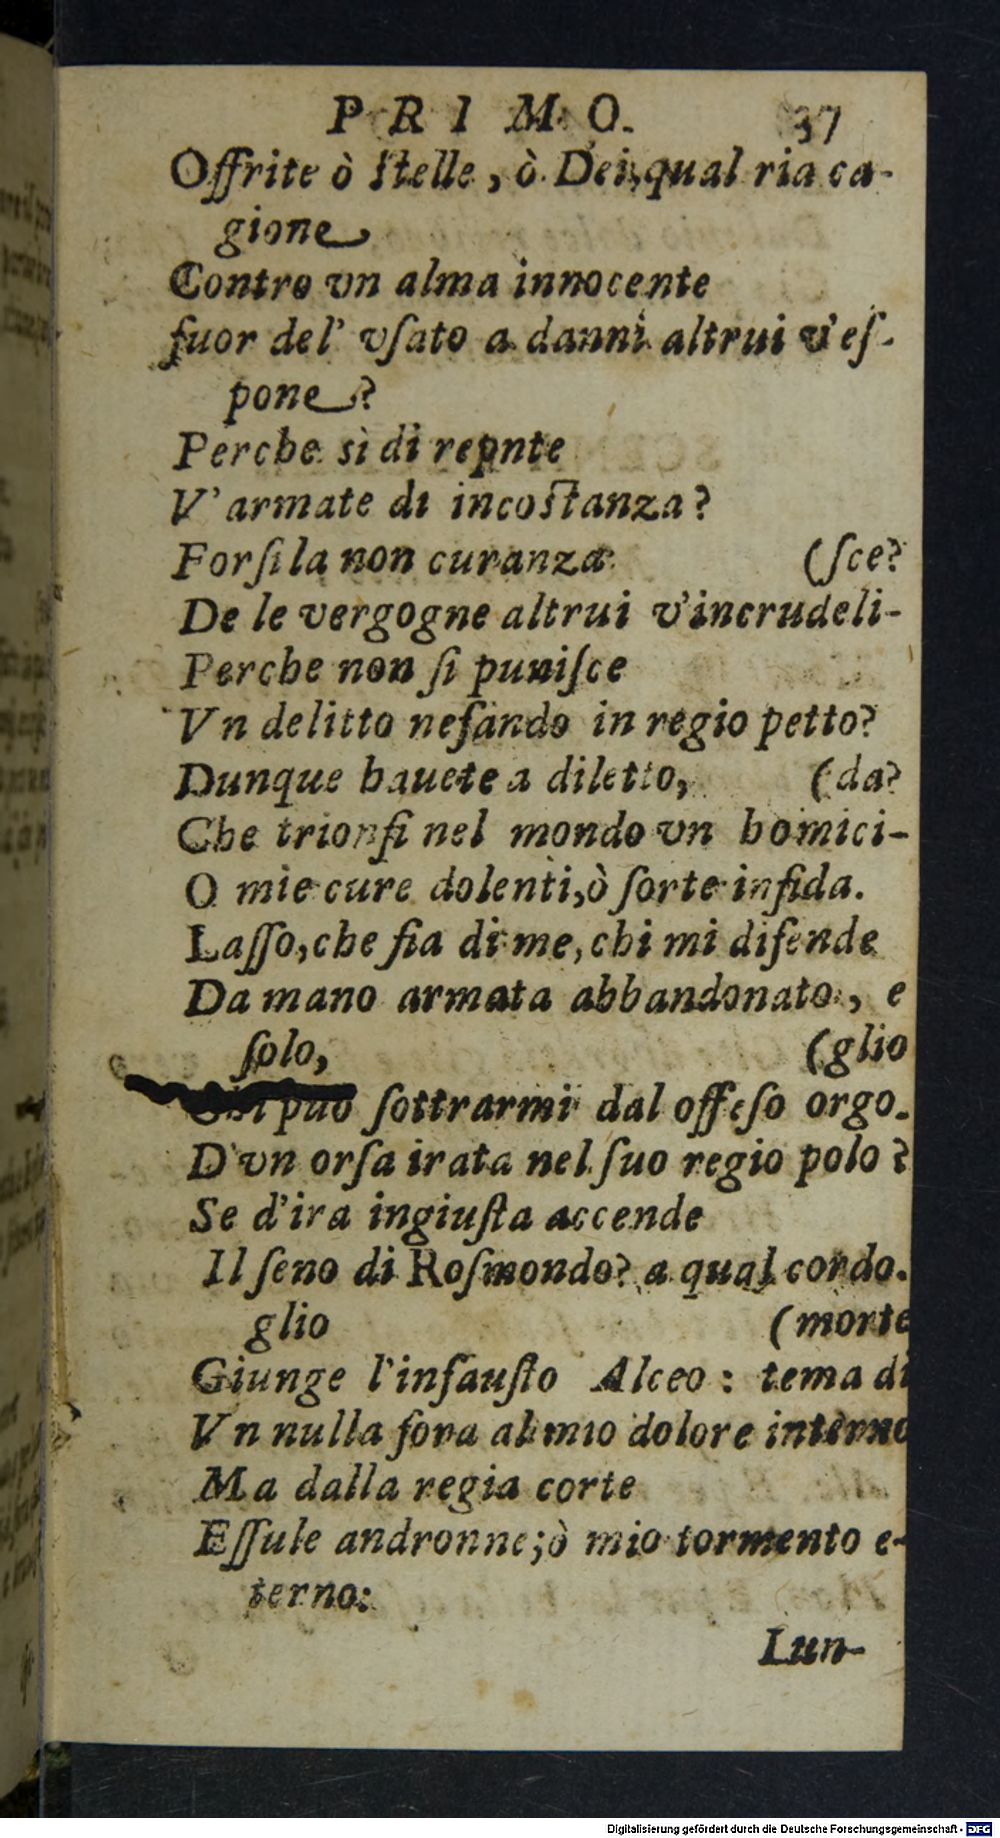 PRIMO. 37
Offrite ò Stelle, ò Dei, qual ria ca-
gione
Contro vn alma innocente
fuor del' vſato a danni altrui v'eſ-
pone?
Perche sì di repnte
V'armate di incoſtanza?
Forſi la non curanza (ſce?
De le vergogne altrui v'incrudeli-
Perche non ſi puniſce
Vn delitto nefando in regio petto?
Dunque hauete a diletto, (da?
Che trionfi nel mondo vn homici-
O mie cure dolenti, ò ſorte infida.
Laſſo, che fia di me, chi mi difende
Da mano armata abbandonato, e
ſolo, (glio
Chi può ſottrarmi dal offeſo orgo-
D'vn orſa irata nel ſuo regio polo?
Se d'ira ingiuſta accende
Il ſeno di Roſmondo? a qual cordo-
glio (morte
Giunge l'infauſto Alceo: tema di
Vn nulla fora al mio dolore interno
Ma dalla regia corte
Eſſule andronne; ò mio tormento e-
terno:
Lun-
Digitalisierung gefördert durch die Deutsche Forschungsgemeinschaft - DFG